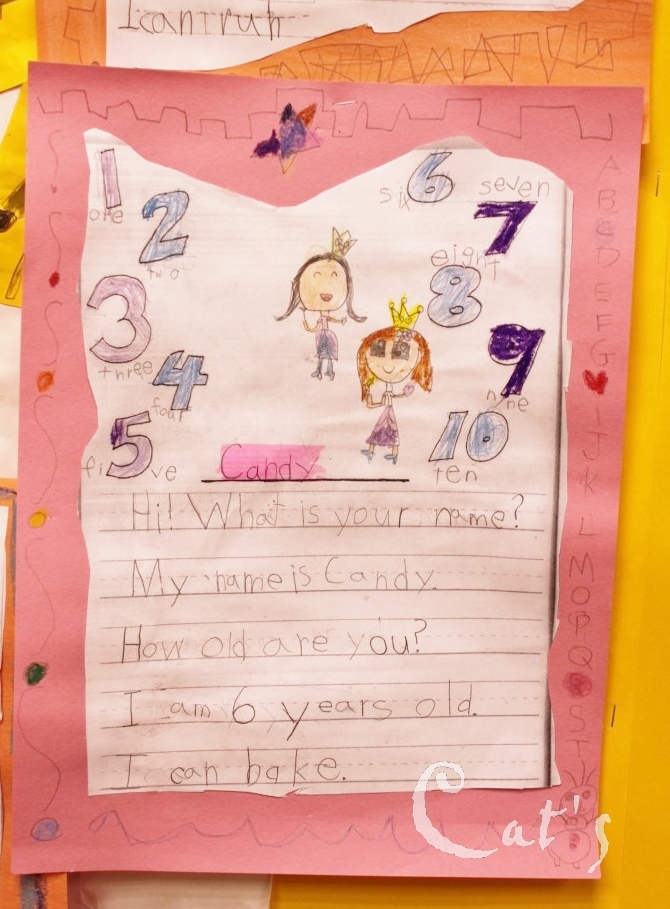 I can
1
one
2
two
3
three
4
four
fi5ve
six 6
seven
7
eight
8
9
nine
10
ten
Candy
Hi! What is your name?
My name is Candy.
How old are you?
I am 6 years old.
I can bake.
A
B
C
D
E
F
G
I
J
K
L
M
O
P
Q
S
T
Cat's